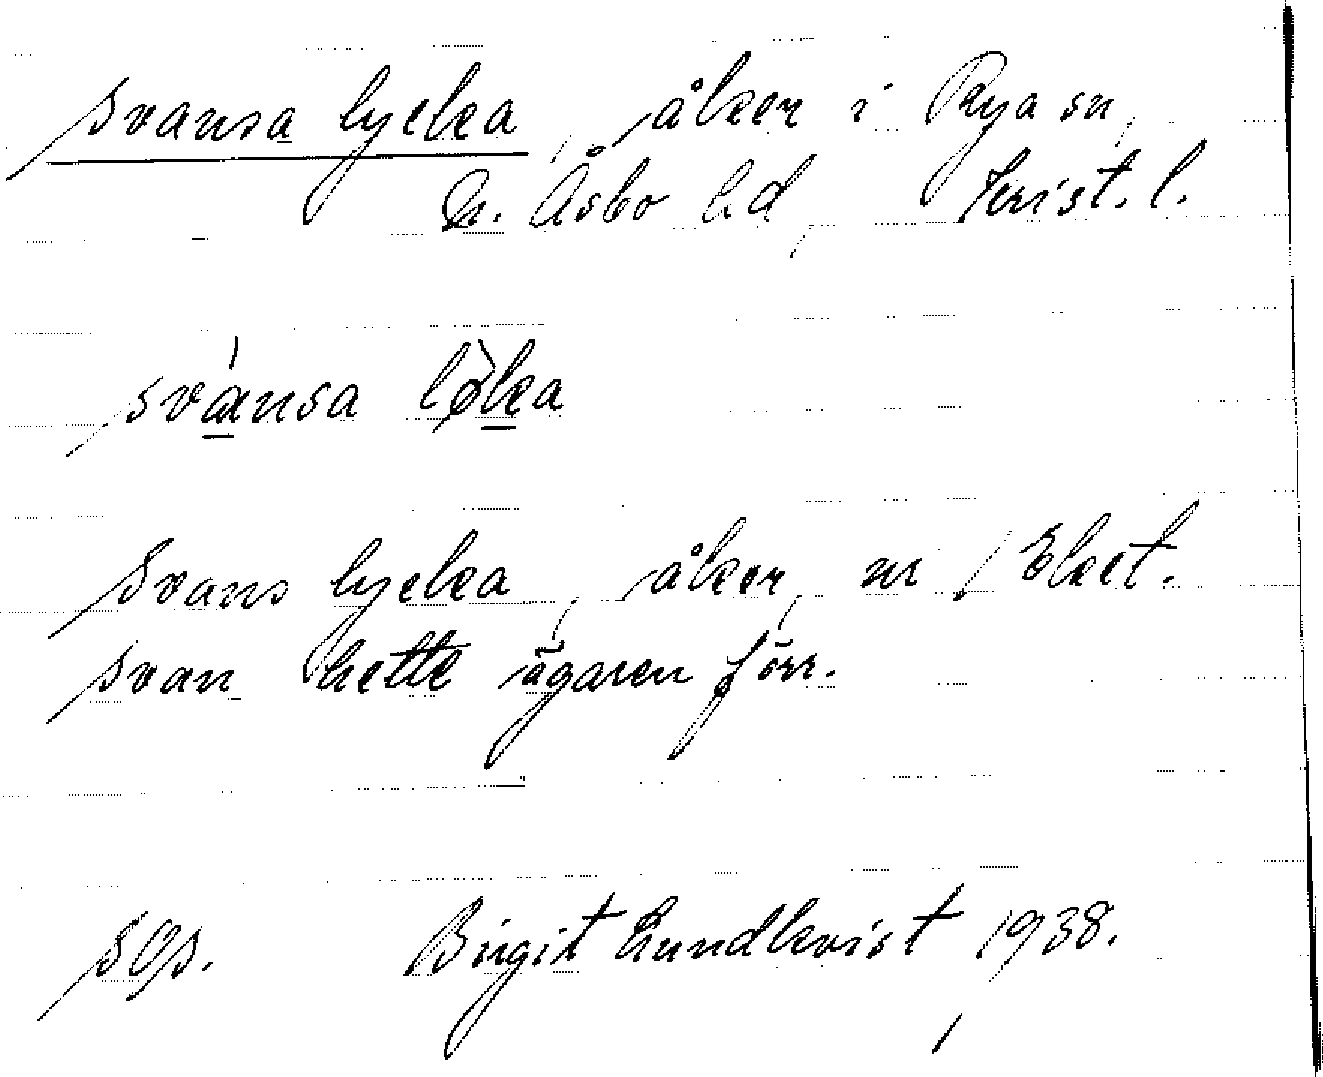 svansa lycka, åker i Rya sn,
N. Åsbo hd, Krist. l.
svánsa lø̀ka
Svans lycka, åker, nr 1 Eket.
Svan hette ägaren förr.
sgs. Birgit Lundkvist 1938.